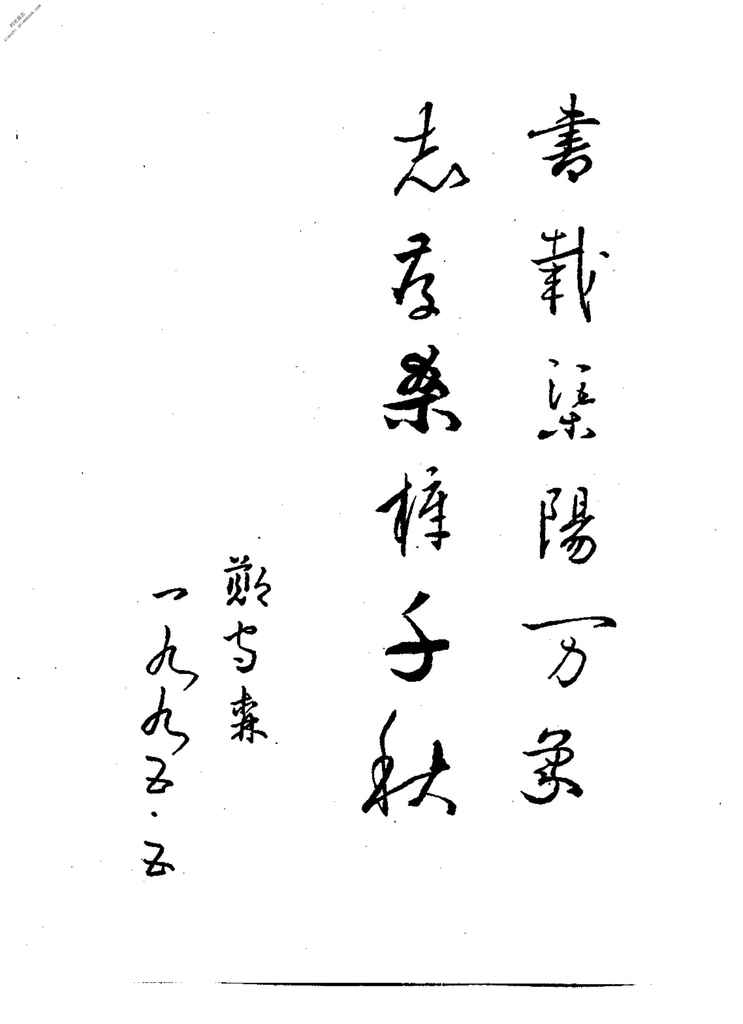 書載渠陽万象
志存桑梓千秋
鄭守森
一九九五.五